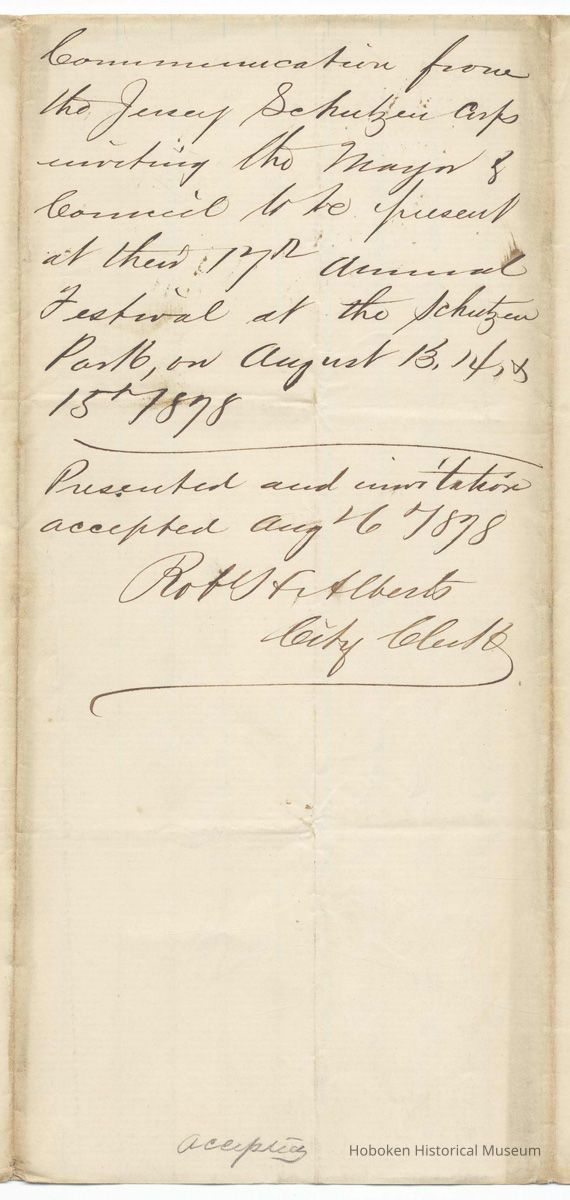 Communication from
the Jersey Schutzen Corps
inviting the Mayor &
Council to be present
at their 17th annual
Festival at the Schutzen
Park, on August 13, 14, &
15th 1878
Presented and invitation
accepted Aug 6th 1878
Robt H. Alberts
City Clerk
accepted
Hoboken Historical Museum